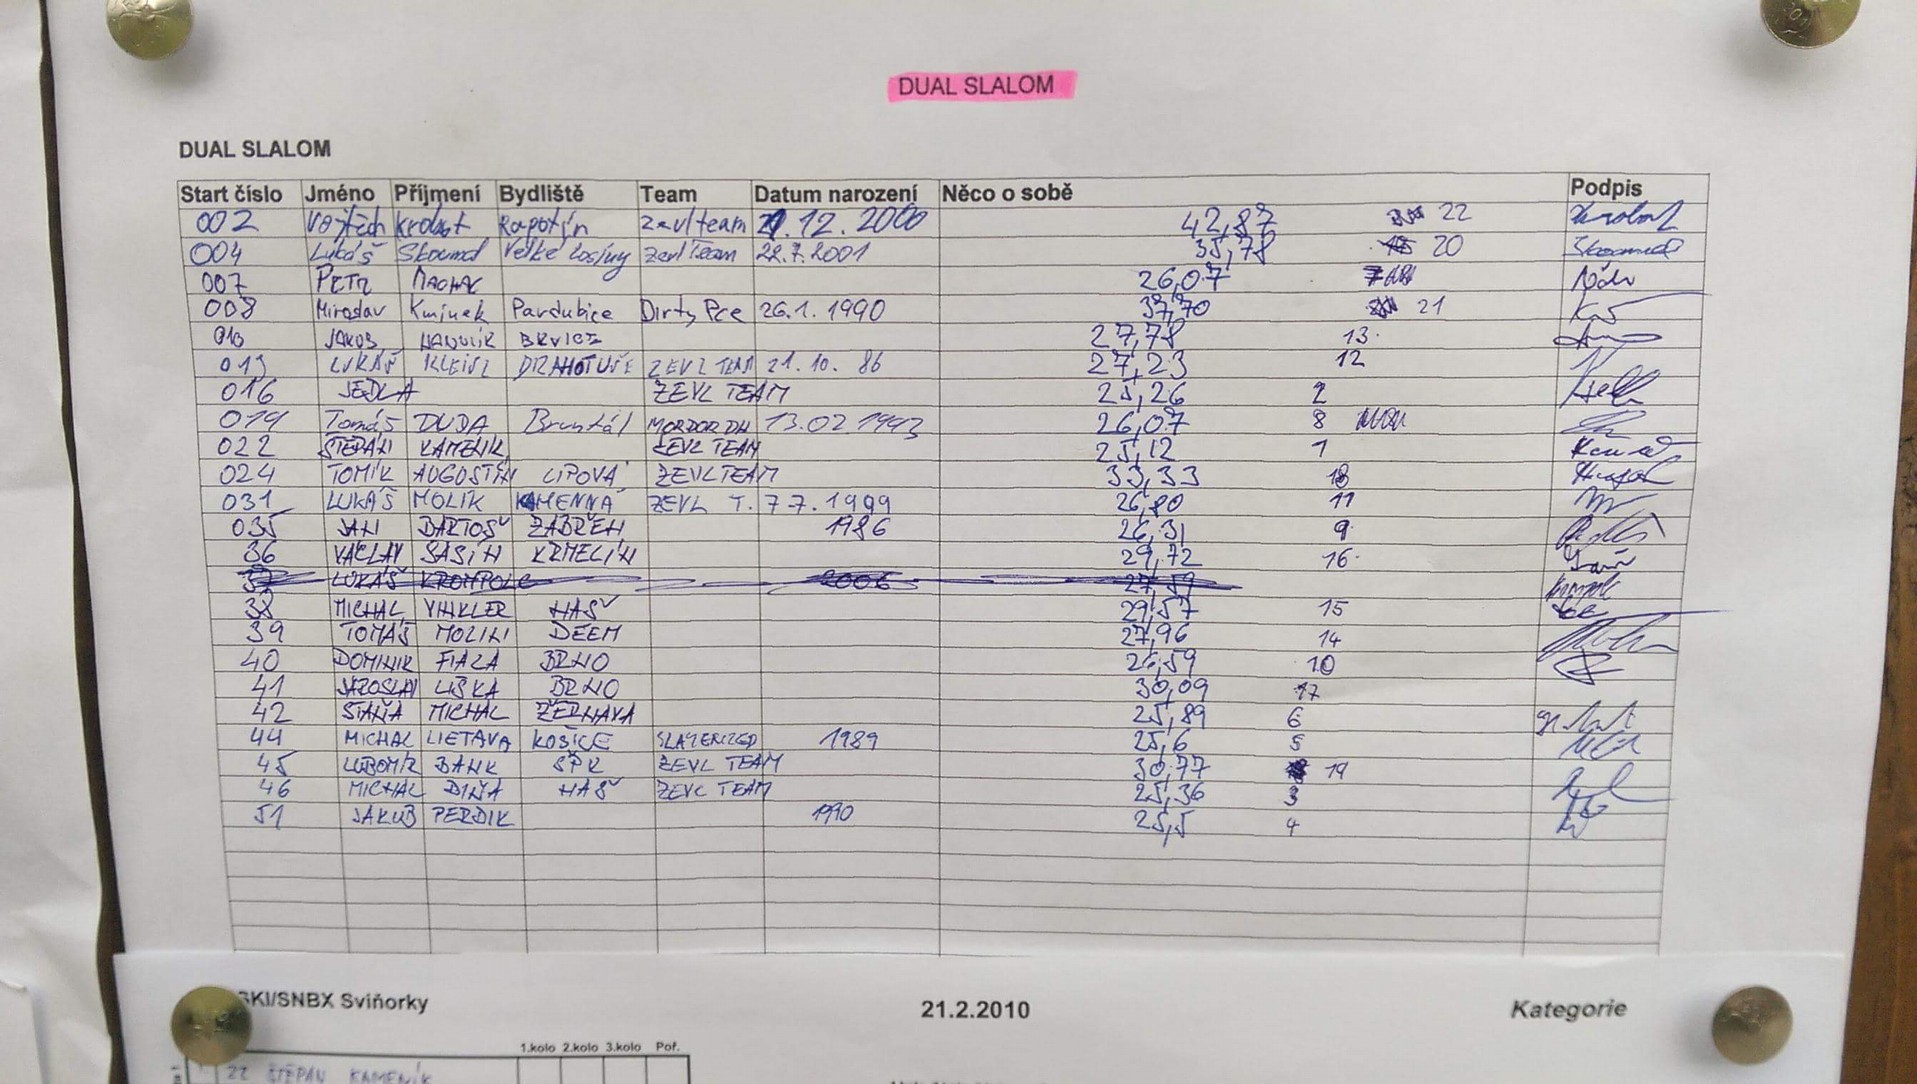 DUAL SLALOM
DUAL SLALOM
Start číslo Jméno Příjmení Bydliště Team Datum narození Něco o sobě Podpis
002 Vojtěch Krobot Rapotín Zevl team 21.12.2000 42,87 22
004 Lukáš Skoumal Velké Losiny Zevl Team 22.7.2001 35,78 20
007 PETR MACHAC 26,07 7
008 Miroslav Kminek Pardubice Dirty Pce 26.1.1990 37,70 21
010 JAKUB 27,78 13.
013 LUKÁŠ DRAHOTUŠE ZEVL TEAM 21.10.86 27,23 12
016 JEDLA ZEVL TEAM 25,26 2
019 Tomáš DUDA Bruntál MORDOR DH 13.02.1993 26,07 8
022 ŠTĚPÁN KAMENÍK ZEVL TEAM 25,12 1
024 TOMÍK AUGUSTÍN LIPOVÁ ZEVL TEAM 33,33 18
031 LUKÁŠ MOLÍK KAMENNÁ ZEVL T. 7.7.1999 26,80 11
035 JAN BARTOŠ ZÁBŘEH 1986 26,31 9
36 VÁCLAV SASÍN KRMELÍN 29,72 16.
37 LUKÁŠ KROMPOLC 2006 27,59
38 MICHAL VINKLER HAŠ 29,57 15
39 TOMÁŠ MOLIN 27,96 14
40 DOMINIK FIALA BRNO 26,59 10
41 JAROSLAV LIŠKA BRNO 30,09 17
42 STAŇA MICHAL ŽERNAVA 25,89 6
44 MICHAL LIETAVA KOŠICE SLAYERIZED 1989 25,6 5
45 LUBOMÍR BANK ŠPK ZEVL TEAM 30,77 19
46 MICHAL DIŇA HAŠ ZEVL TEAM 25,36 3
51 JAKUB PERDIK 1990 25,5 4
SKI/SNBX Sviňorky 21.2.2010 Kategorie
1.kolo 2.kolo 3.kolo Poř.
22 ŠTĚPÁN KAMENÍK